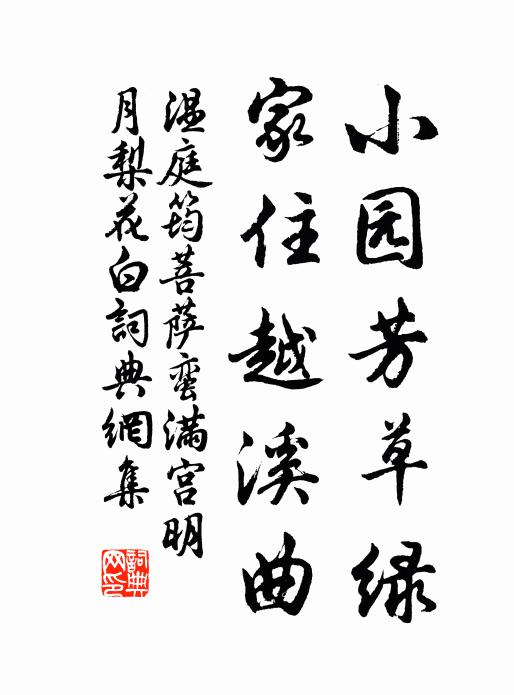 小园芳草绿
家住越溪曲
温庭筠菩萨蛮满宫明
月梨花白詞典網集
詞典网印